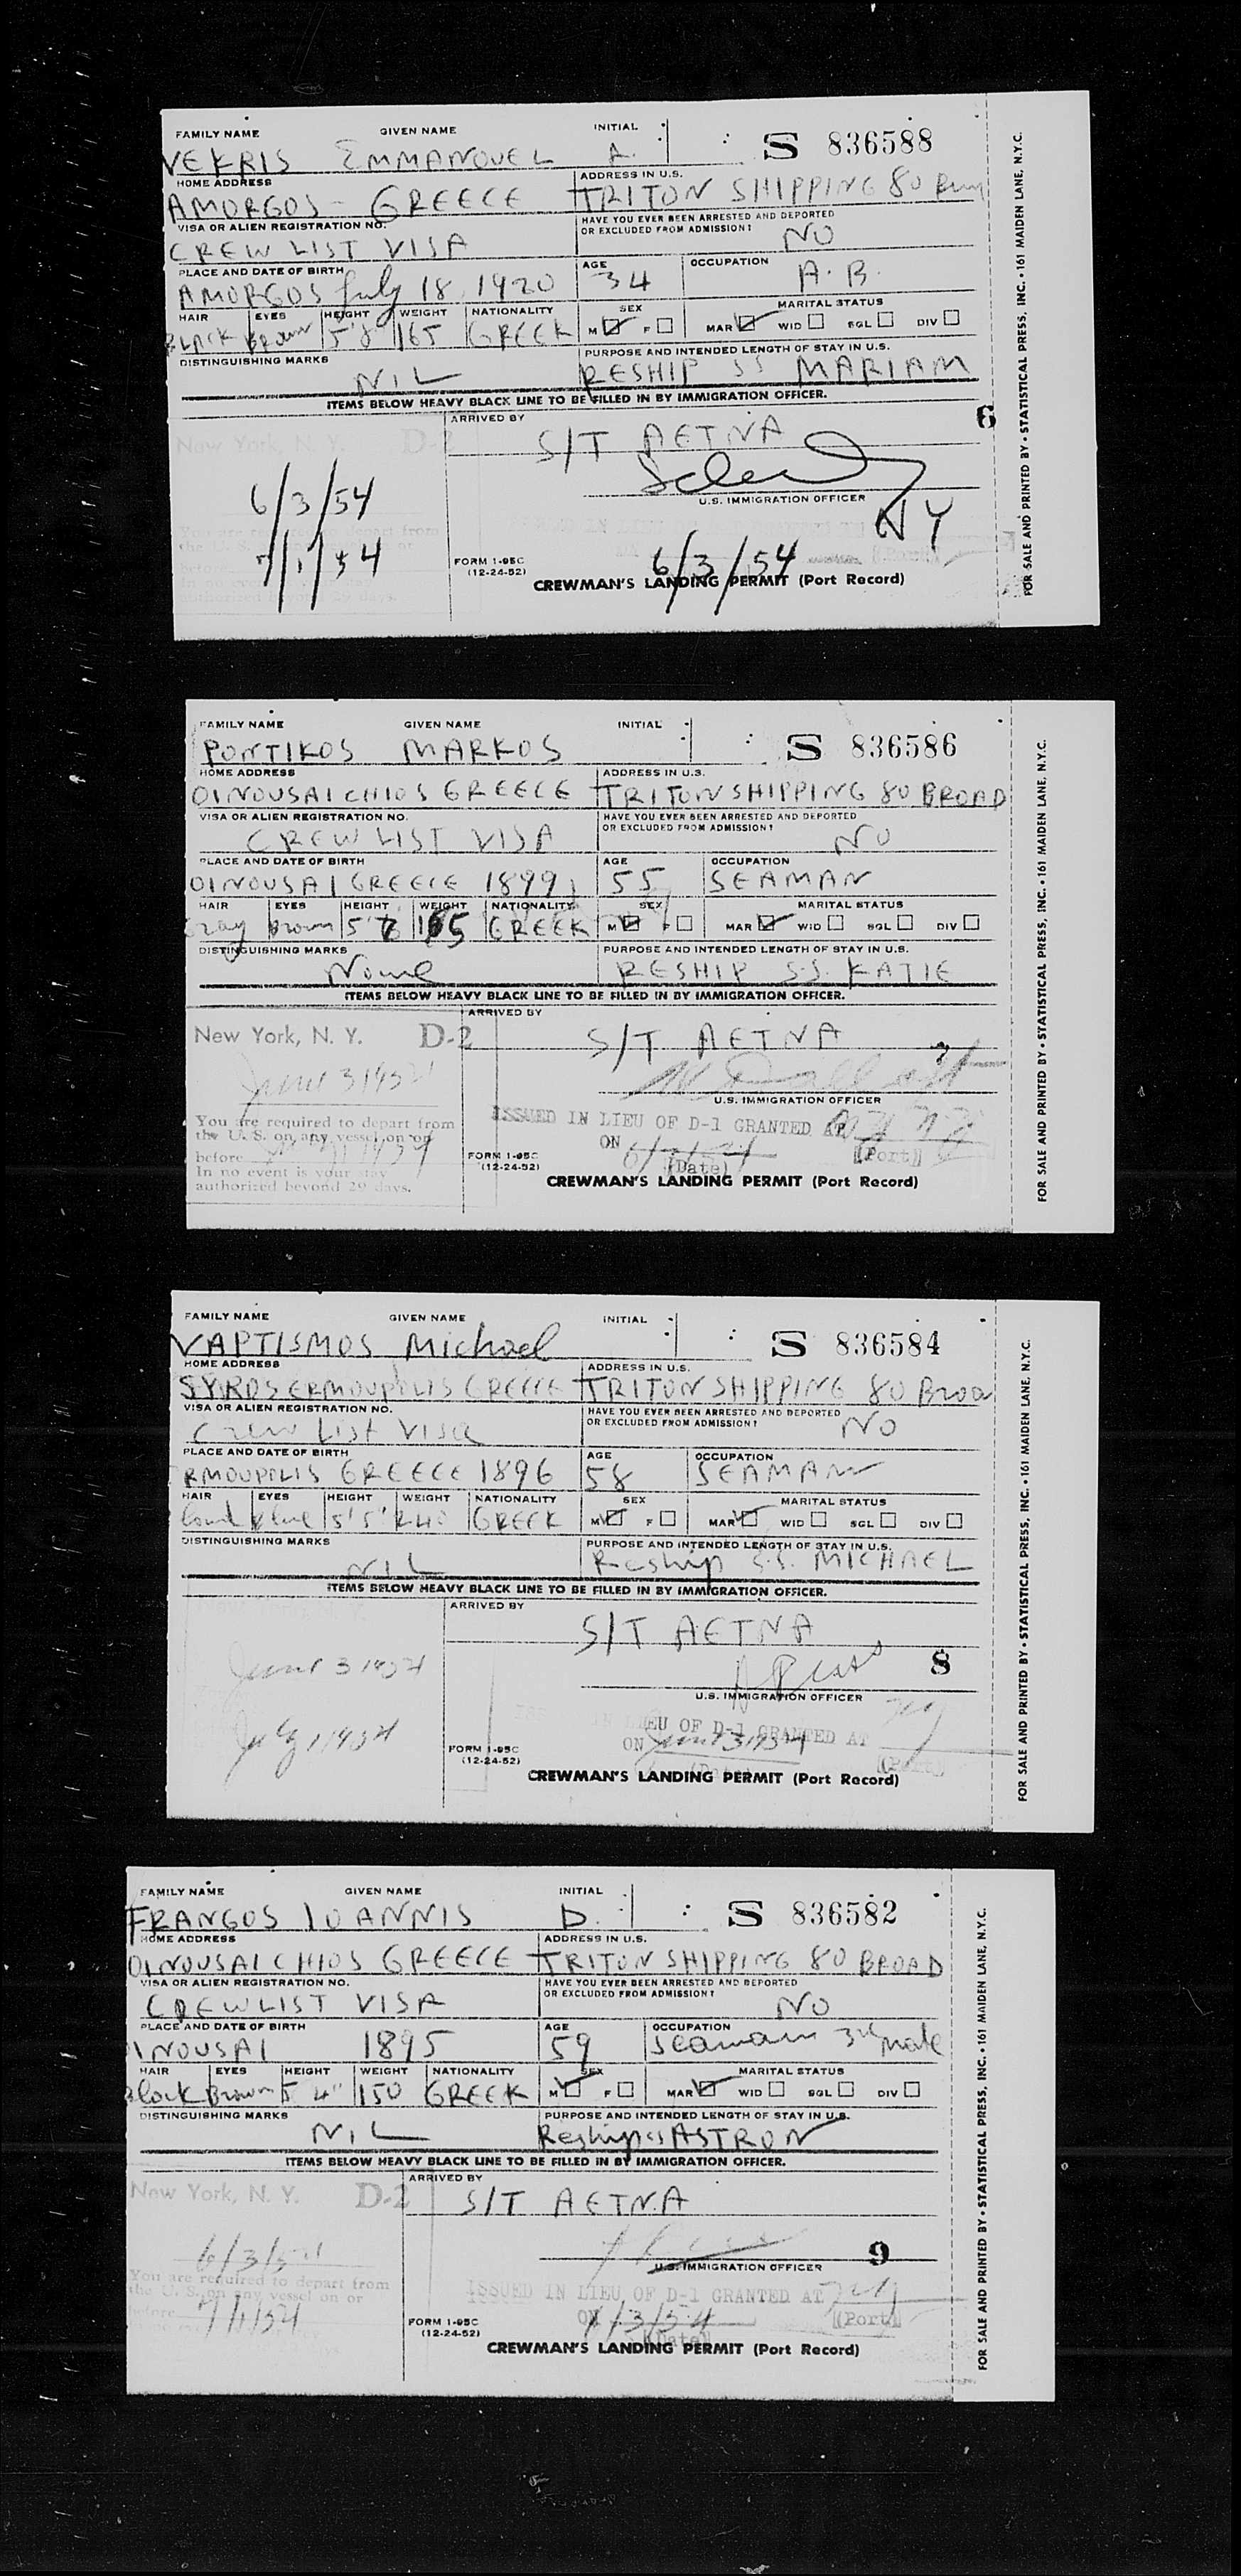 FAMILY NAME GIVEN NAME INITIAL S 836588
VEKRIS EMMANOUEL A.
HOME ADDRESS ADDRESS IN U.S.
AMORGOS - GREECE TRITON SHIPPING 80
VISA OR ALIEN REGISTRATION NO. HAVE YOU EVER BEEN ARRESTED AND DEPORTED OR EXCLUDED FROM ADMISSION?
CREW LIST VISA NO
PLACE AND DATE OF BIRTH AGE OCCUPATION
AMORGOS July 18, 1920 34 A.B.
HAIR EYES HEIGHT WEIGHT NATIONALITY SEX MARITAL STATUS
BLACK Brown 5'8 165 GREEK M F MAR WID SGL DIV
DISTINGUISHING MARKS PURPOSE AND INTENDED LENGTH OF STAY IN U.S.
NIL RESHIP SS MARIAM
ITEMS BELOW HEAVY BLACK LINE TO BE FILLED IN BY IMMIGRATION OFFICER.
ARRIVED BY 6
New York, N. Y. D-2 S/T AETNA
6/3/54 U.S. IMMIGRATION OFFICER
NY
7/1/54 FORM I-95C (12-24-52) 6/3/54
CREWMAN'S LANDING PERMIT (Port Record)
FOR SALE AND PRINTED BY • STATISTICAL PRESS, INC. • 161 MAIDEN LANE, N.Y.C.
FAMILY NAME GIVEN NAME INITIAL S 836586
PONTIKOS MARKOS
HOME ADDRESS ADDRESS IN U.S.
OINOUSAI CHIOS GREECE TRITON SHIPPING 80 BROAD
VISA OR ALIEN REGISTRATION NO. HAVE YOU EVER BEEN ARRESTED AND DEPORTED OR EXCLUDED FROM ADMISSION?
CREW LIST VISA NO
PLACE AND DATE OF BIRTH AGE OCCUPATION
OINOUSAI GREECE 1899 55 SEAMAN
HAIR EYES HEIGHT WEIGHT NATIONALITY SEX MARITAL STATUS
Gray Brown 165 GREEK M F MAR WID SGL DIV
DISTINGUISHING MARKS PURPOSE AND INTENDED LENGTH OF STAY IN U.S.
None RESHIP S.S. KATIE
ITEMS BELOW HEAVY BLACK LINE TO BE FILLED IN BY IMMIGRATION OFFICER.
ARRIVED BY
New York, N. Y. D-2 S/T AETNA
June 3 1954
U.S. IMMIGRATION OFFICER
You are required to depart from
the U. S. on any vessel on or
before
In no event is your stay
authorized beyond 29 days.
ISSUED IN LIEU OF D-1 GRANTED AT
ON (Date) (Port)
FORM I-95C (12-24-52)
CREWMAN'S LANDING PERMIT (Port Record)
FOR SALE AND PRINTED BY • STATISTICAL PRESS, INC. • 161 MAIDEN LANE, N.Y.C.
FAMILY NAME GIVEN NAME INITIAL S 836584
VAPTISMOS Michael
HOME ADDRESS ADDRESS IN U.S.
SYROS ERMOUPOLIS GREECE TRITON SHIPPING 80 Broa
VISA OR ALIEN REGISTRATION NO. HAVE YOU EVER BEEN ARRESTED AND DEPORTED OR EXCLUDED FROM ADMISSION?
Crew List Visa NO
PLACE AND DATE OF BIRTH AGE OCCUPATION
RMOUPOLIS GREECE 1896 58 SEAMAN
HAIR EYES HEIGHT WEIGHT NATIONALITY SEX MARITAL STATUS
Blue 5'5" GREEK M F MAR WID SGL DIV
DISTINGUISHING MARKS PURPOSE AND INTENDED LENGTH OF STAY IN U.S.
NIL Reship S.S. MICHAEL
ITEMS BELOW HEAVY BLACK LINE TO BE FILLED IN BY IMMIGRATION OFFICER.
ARRIVED BY
S/T AETNA
June 3 1954 8
U.S. IMMIGRATION OFFICER
July 1 1954 IN LIEU OF D-1 GRANTED AT NY
ON June 3 1954 (Port)
FORM I-95C (12-24-52)
CREWMAN'S LANDING PERMIT (Port Record)
FOR SALE AND PRINTED BY • STATISTICAL PRESS, INC. • 161 MAIDEN LANE, N.Y.C.
FAMILY NAME GIVEN NAME INITIAL S 836582
FRANGOS IOANNIS D.
HOME ADDRESS ADDRESS IN U.S.
OINOUSAI CHIOS GREECE TRITON SHIPPING 80 BROAD
VISA OR ALIEN REGISTRATION NO. HAVE YOU EVER BEEN ARRESTED AND DEPORTED OR EXCLUDED FROM ADMISSION?
CREW LIST VISA NO
PLACE AND DATE OF BIRTH AGE OCCUPATION
INOUSAI 1895 59 Seaman 3rd Mate
HAIR EYES HEIGHT WEIGHT NATIONALITY SEX MARITAL STATUS
Black Brown 5 4" 150 GREEK M F MAR WID SGL DIV
DISTINGUISHING MARKS PURPOSE AND INTENDED LENGTH OF STAY IN U.S.
NIL Reship ss ASTRON
ITEMS BELOW HEAVY BLACK LINE TO BE FILLED IN BY IMMIGRATION OFFICER.
ARRIVED BY
New York, N. Y. D-2 S/T AETNA
6/3/54 9
U.S. IMMIGRATION OFFICER
You are required to depart from
the U. S. on any vessel on or
before 7/1/54
ISSUED IN LIEU OF D-1 GRANTED AT NY
ON 6/3/54 (Date) (Port)
FORM I-95C (12-24-52)
CREWMAN'S LANDING PERMIT (Port Record)
FOR SALE AND PRINTED BY • STATISTICAL PRESS, INC. • 161 MAIDEN LANE, N.Y.C.